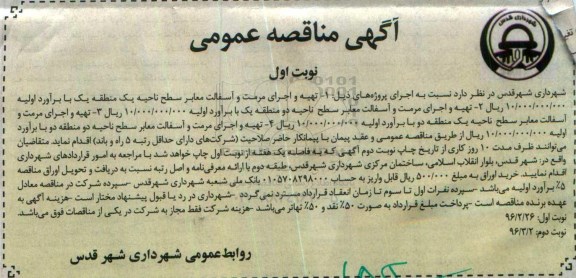 شهرداری قدس
آگهی مناقصه عمومی
نوبت اول
شهرداری شهرقدس در نظر دارد نسبت به اجرای پروژه‌های ذیل: ۱- تهیه و اجرای مرمت و آسفالت معابر سطح ناحیه یک منطقه یک با برآورد اولیه
۱۰/۰۰۰/۰۰۰/۰۰۰ ریال ۲- تهیه و اجرای مرمت و آسفالت معابر سطح ناحیه دو منطقه یک با برآورد اولیه ۱۰/۰۰۰/۰۰۰/۰۰۰ ریال ۳- تهیه و اجرای مرمت و
آسفالت معابر سطح ناحیه یک منطقه دو با برآورد اولیه ۱۰/۰۰۰/۰۰۰/۰۰۰ ریال ۴- تهیه و اجرای مرمت و آسفالت معابر سطح ناحیه دو منطقه دو با برآورد
اولیه ۱۰/۰۰۰/۰۰۰/۰۰۰ ریال از طریق مناقصه عمومی و عقد پیمان با پیمانکار حائز صلاحیت (شرکت‌های دارای حداقل رتبه ۵ راه و باند) اقدام نماید. متقاضیان
می‌توانند ظرف مدت ۱۰ روز کاری از تاریخ چاپ نوبت دوم آگهی که به فاصله یک هفته از نوبت اول چاپ خواهد شد با مراجعه به امور قراردادهای شهرداری
واقع در: شهر قدس، بلوار انقلاب اسلامی، ساختمان مرکزی شهرداری شهرقدس، طبقه دوم با ارائه معرفی‌نامه و اصل رتبه نسبت به دریافت و تحویل اوراق مناقصه
اقدام نمایند. خرید اوراق به مبلغ ۵۰۰/۰۰۰ ریال قابل واریز به حساب ۰۱۰۵۷۰۸۲۹۸۰۰۰ بانک ملی شعبه شهرداری شهرقدس -سپرده شرکت در مناقصه معادل
۵٪ برآورد اولیه می‌باشد -سپرده نفرات اول تا سوم تا زمان انعقاد قرارداد مسترد نمی‌گردد -شهرداری در رد یا قبول پیشنهاد مختار است -هزینه آگهی به
عهده برنده مناقصه است -پرداخت مبلغ قرارداد به صورت ۵۰٪ نقد و ۵۰٪ تهاتر می‌باشد -هزینه شرکت فقط مجاز به شرکت در یکی از مناقصات فوق می‌باشد.
نوبت اول: ۹۶/۲/۲۶
نوبت دوم: ۹۶/۳/۲
روابط عمومی شهرداری شهر قدس